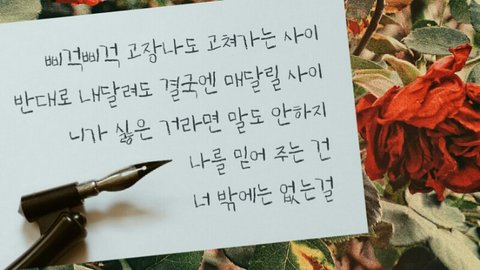 삐걱삐걱 고장나도 고쳐가는 사이
반대로 내달려도 결국엔 매달릴 사이
니가 싫은 거라면 말도 안하지
나를 믿어 주는 건
너 밖에는 없는걸